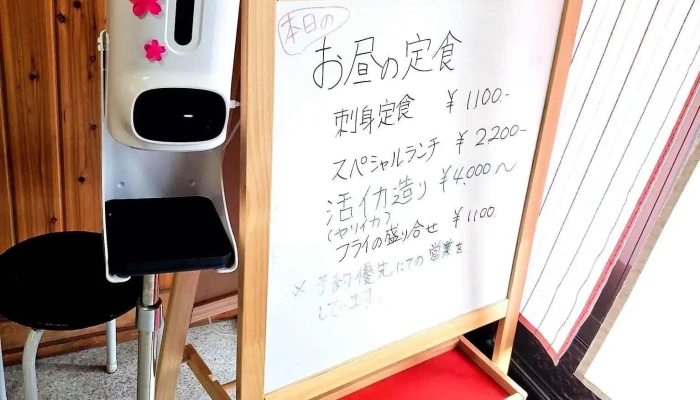 本日の
お昼の定食
刺身定食 ¥1100.-
スペシャルランチ ¥2,200-
活イカ造り ¥4,000〜
(ヤリイカ)
フライの盛り合せ ¥1100.
※予約優先にての営業を
しています。